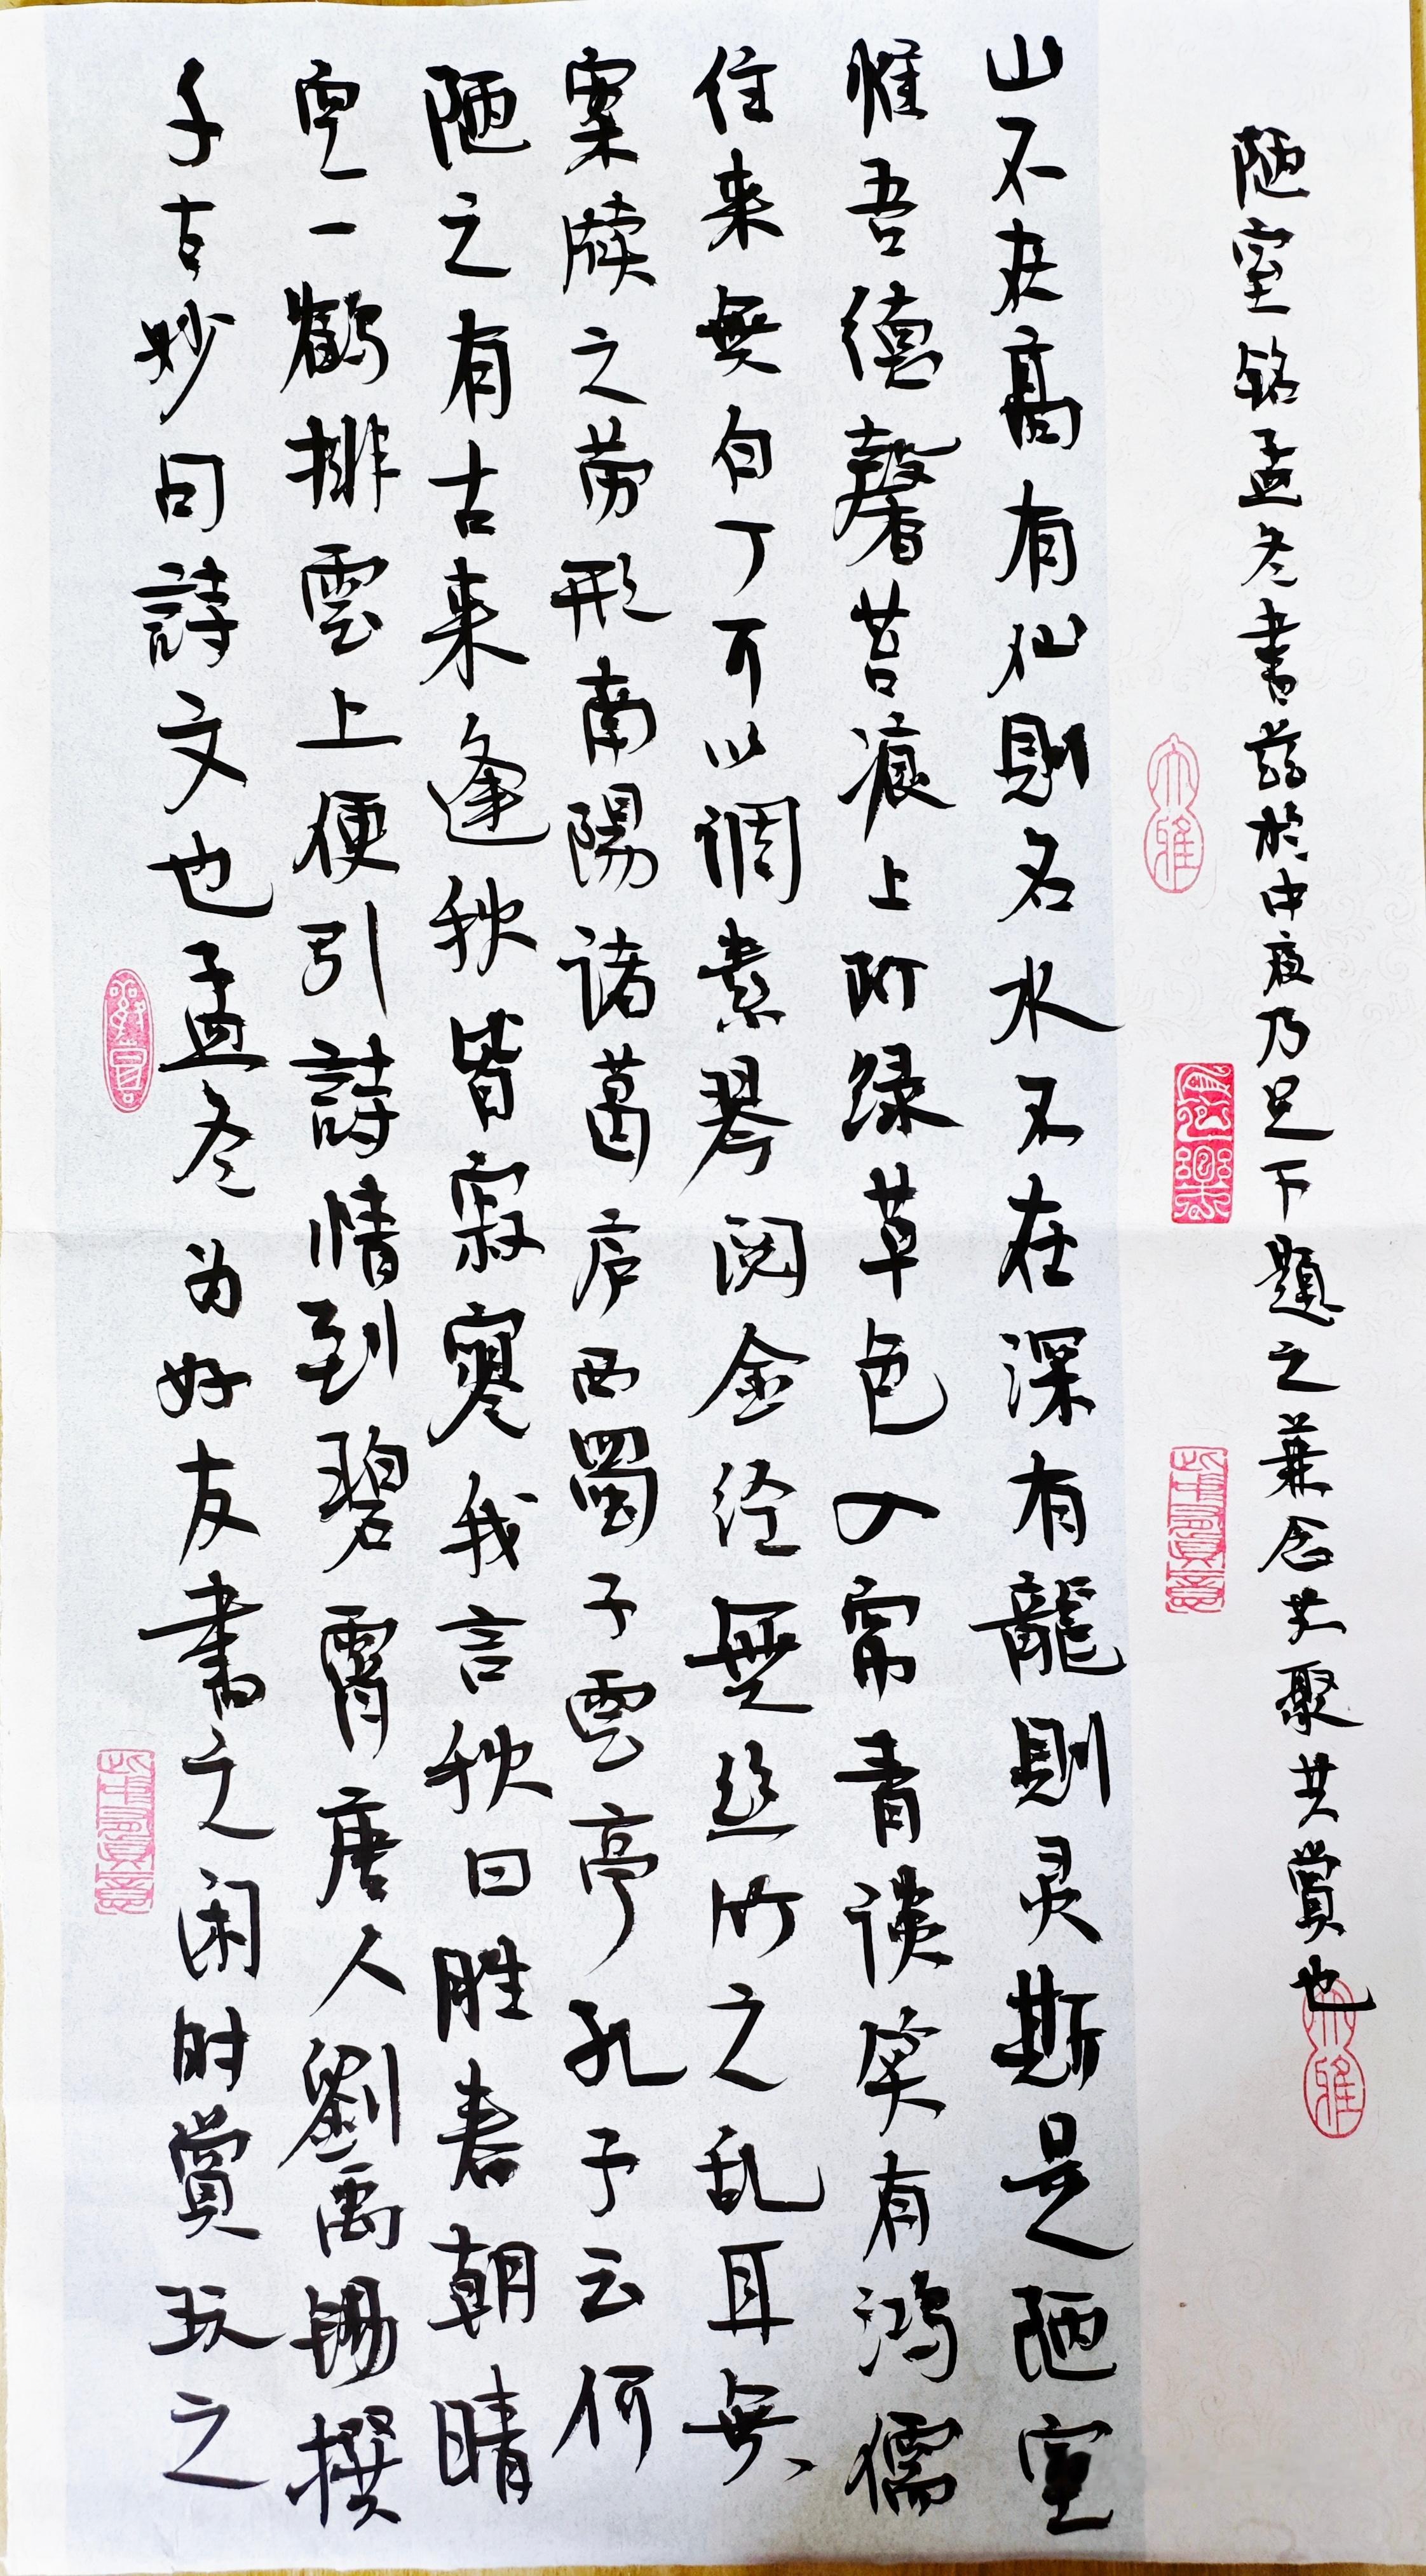 陋室铭孟冬書兹於中夜乃足下題之兼念共聚共賞也
山不在高有仙則名水不在深有龍則灵斯是陋室
惟吾德馨苔痕上阶绿草色入帘青谈笑有鸿儒
往来無白丁可以调素琴阅金经無丝竹之乱耳無
案牍之劳形南陽诸葛庐西蜀子雲亭孔子云何
陋之有古来逢秋皆寂寞我言秋日胜春朝晴
空一鶴排雲上便引詩情到碧霄唐人劉禹锡撰
千古妙句詩文也孟冬为好友書之闲时賞玩之
大雅
長樂
大雅